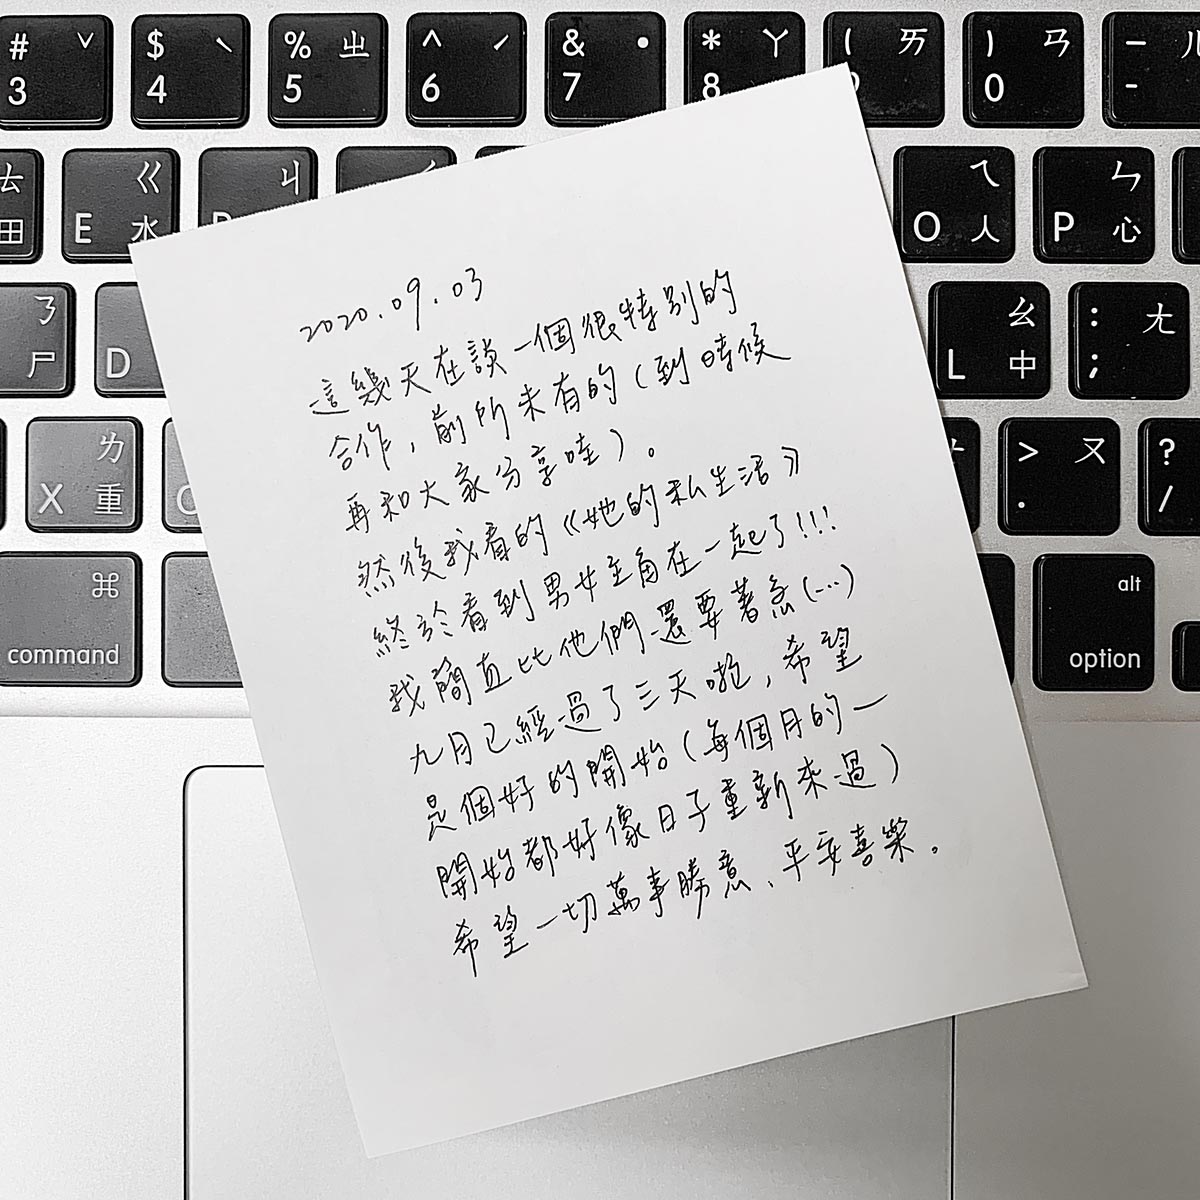 # ˇ
3
$ ˋ
4
% ㄓ
5
^ ˊ
6
& ˙
7
* ㄚ
8
( ㄞ
) ㄢ
0
— ㄦ
-
ㄊ
田
ㄍ
E 水
ㄐ
ㄟ
O 人
ㄣ
P 心
ㄋ
尸
D
ㄠ
L 中
: ㄤ
;
ㄌ
X 重
> ㄡ
.
?
/
⌘
command
alt
option
2020.09.03
這幾天在談一個很特別的
合作，前所未有的（到時候
再和大家分享哇）。
然後我看的《她的私生活》
終於看到男女主角在一起了!!!
我簡直比他們還要著急(...)
九月已經過了三天啦，希望
是個好的開始（每個月的一
開始都好像日子重新來過）
希望一切萬事勝意、平安喜樂。